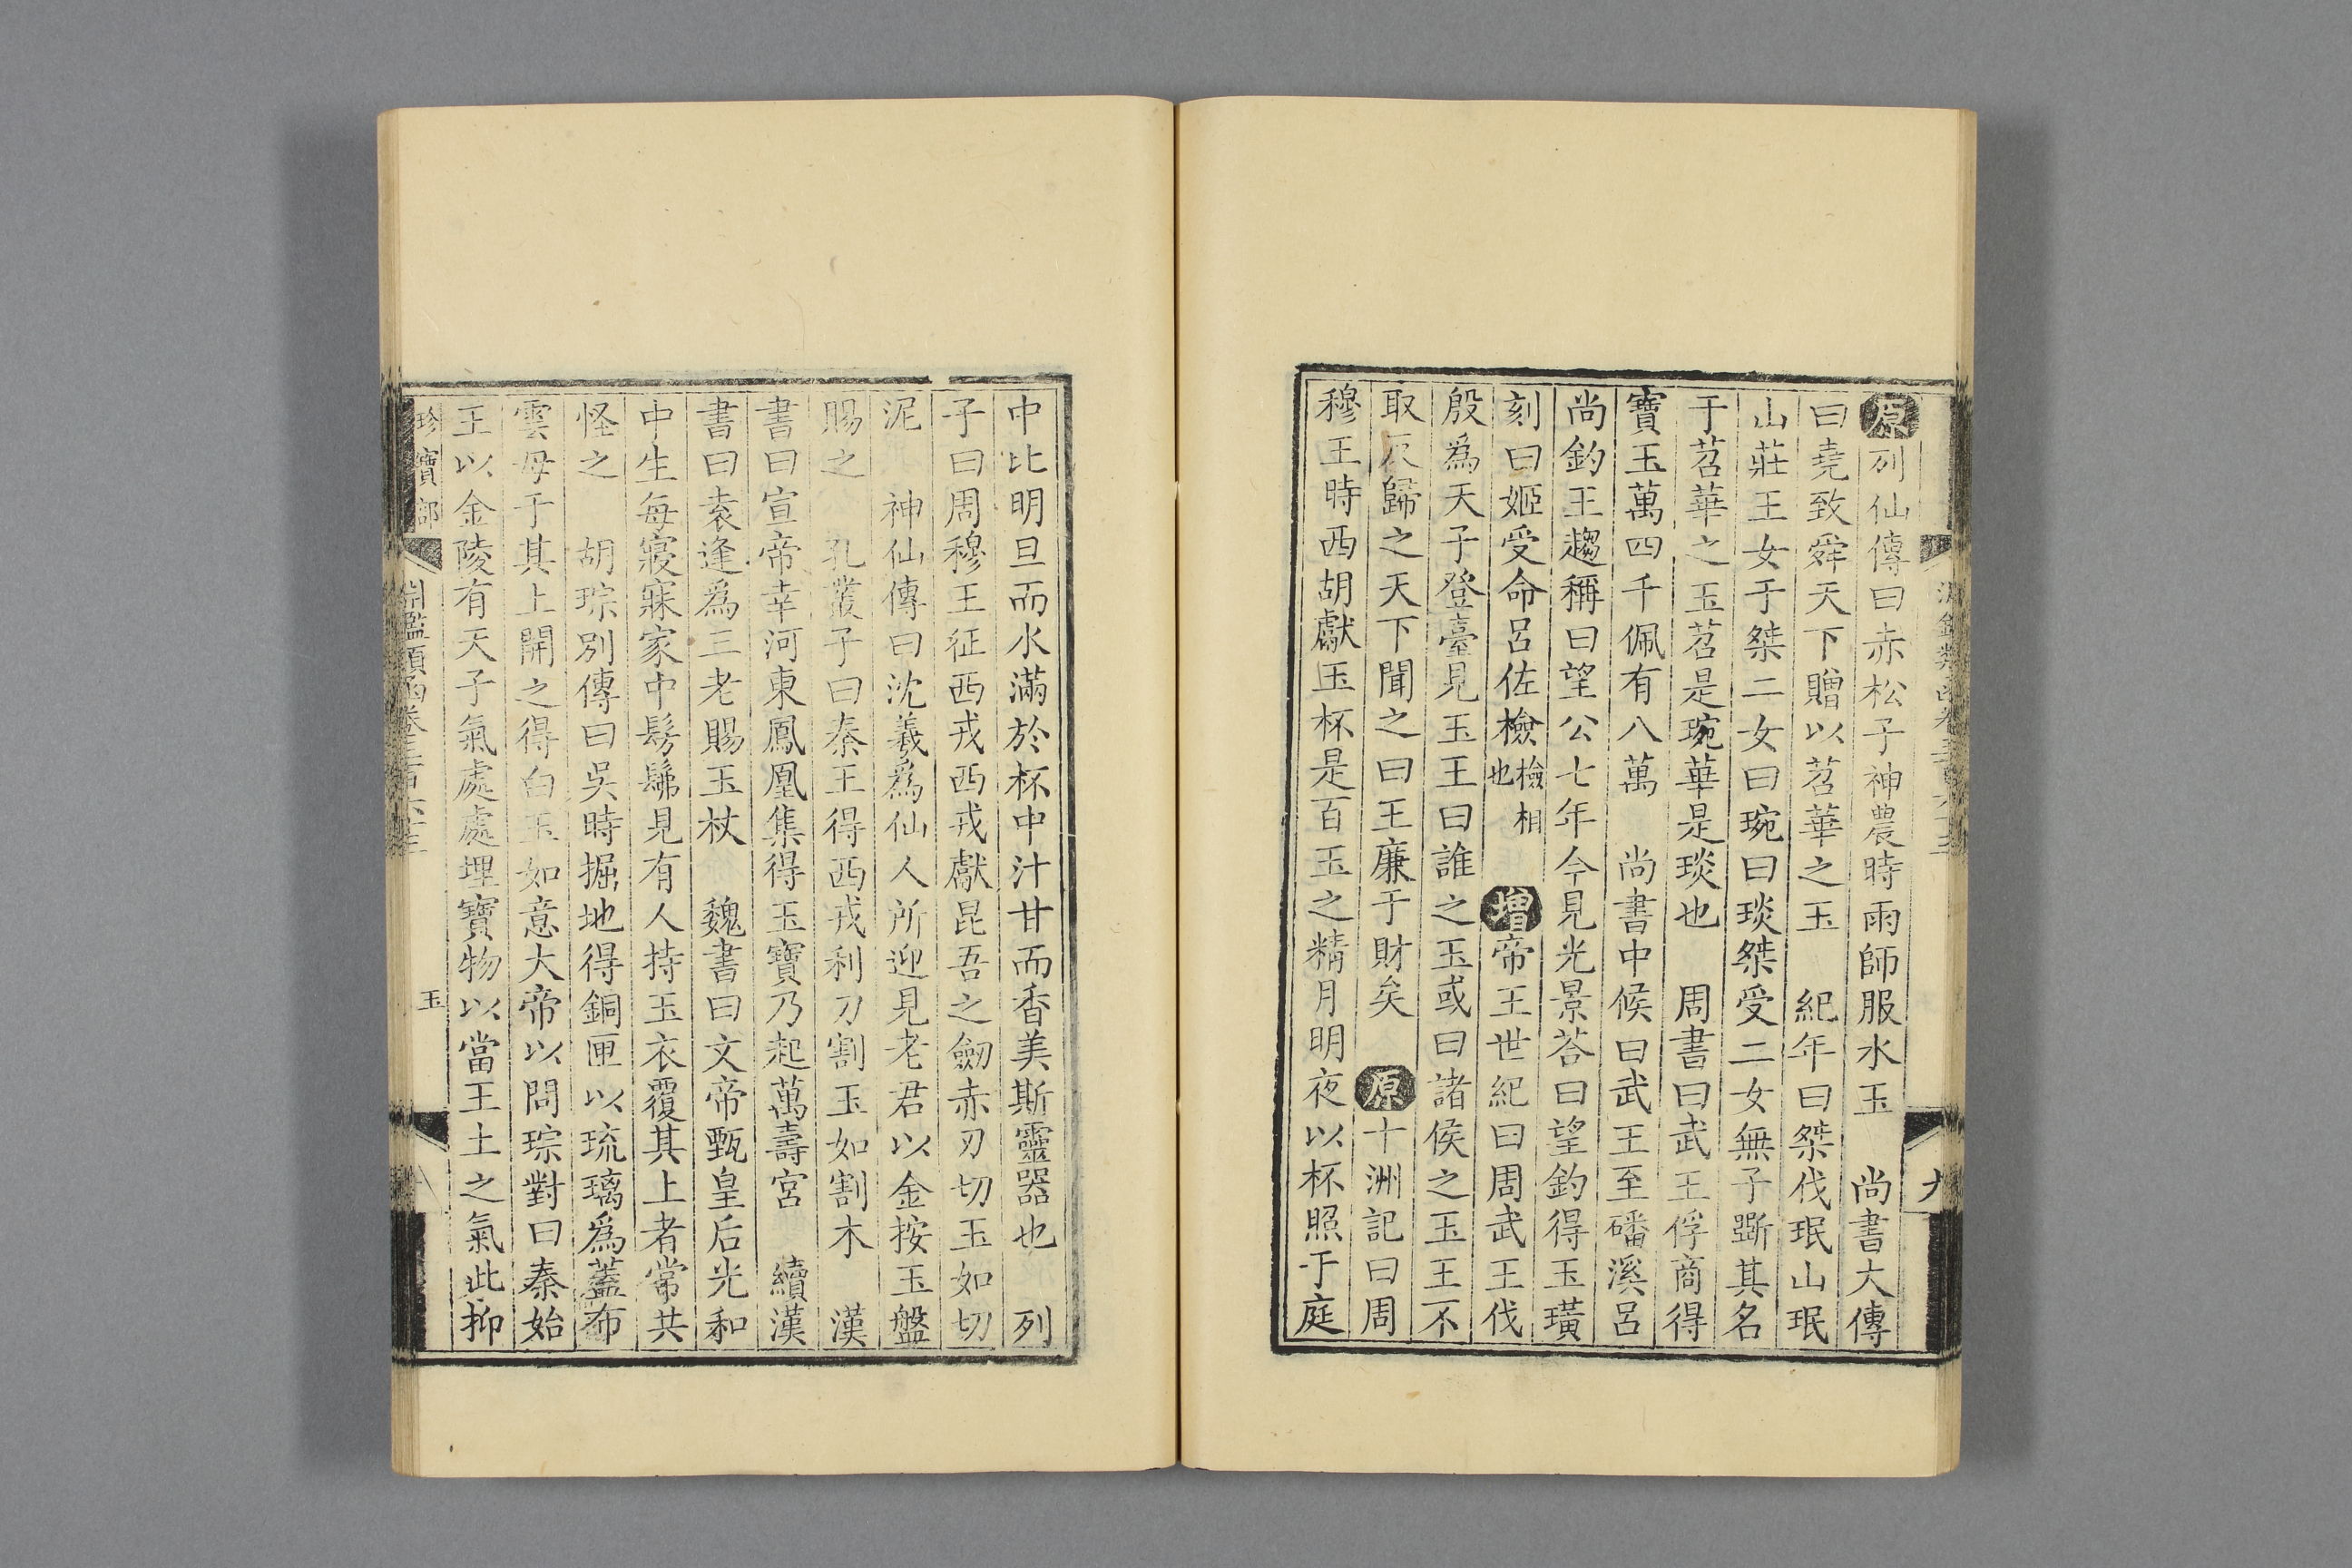 原列仙傳曰赤松子神農時雨師服水玉　尚書大傳
曰堯致舜天下贈以苕華之玉　紀年曰桀伐珉山珉
山莊王女于桀二女曰琬曰琰桀受二女無子斲其名
于苕華之玉苕是琬華是琰也　周書曰武王俘商得
寶玉萬四千佩有八萬　尚書中候曰武王至磻溪呂
尚釣王趨稱曰望公七年今見光景荅曰望釣得玉璜
刻曰姬受命呂佐檢檢相也　增帝王世紀曰周武王伐
殷為天子登臺見玉王曰誰之玉或曰諸侯之玉王不
取而歸之天下聞之曰王廉于財矣　原十洲記曰周
穆王時西胡獻玉杯是百玉之精月明夜以杯照于庭
淵鑑類函卷三百六十三
九
中比明旦而水滿於杯中汁甘而香美斯靈器也　列
子曰周穆王征西戎西戎獻昆吾之劒赤刃切玉如切
泥　神仙傳曰沈羲為仙人所迎見老君以金按玉盤
賜之　孔叢子曰秦王得西戎利刀割玉如割木　漢
書曰宣帝幸河東鳳凰集得玉寶乃起萬壽宮　續漢
書曰袁逢為三老賜玉杖　魏書曰文帝甄皇后光和
中生每寢寐家中髣髴見有人持玉衣覆其上者常共
怪之　胡琮別傳曰吳時掘地得銅匣以琉璃為蓋布
雲母于其上開之得白玉如意大帝以問琮對曰秦始
王以金陵有天子氣處處埋寶物以當王土之氣此抑
珍寶部
淵鑑類函卷三百六十三
玉